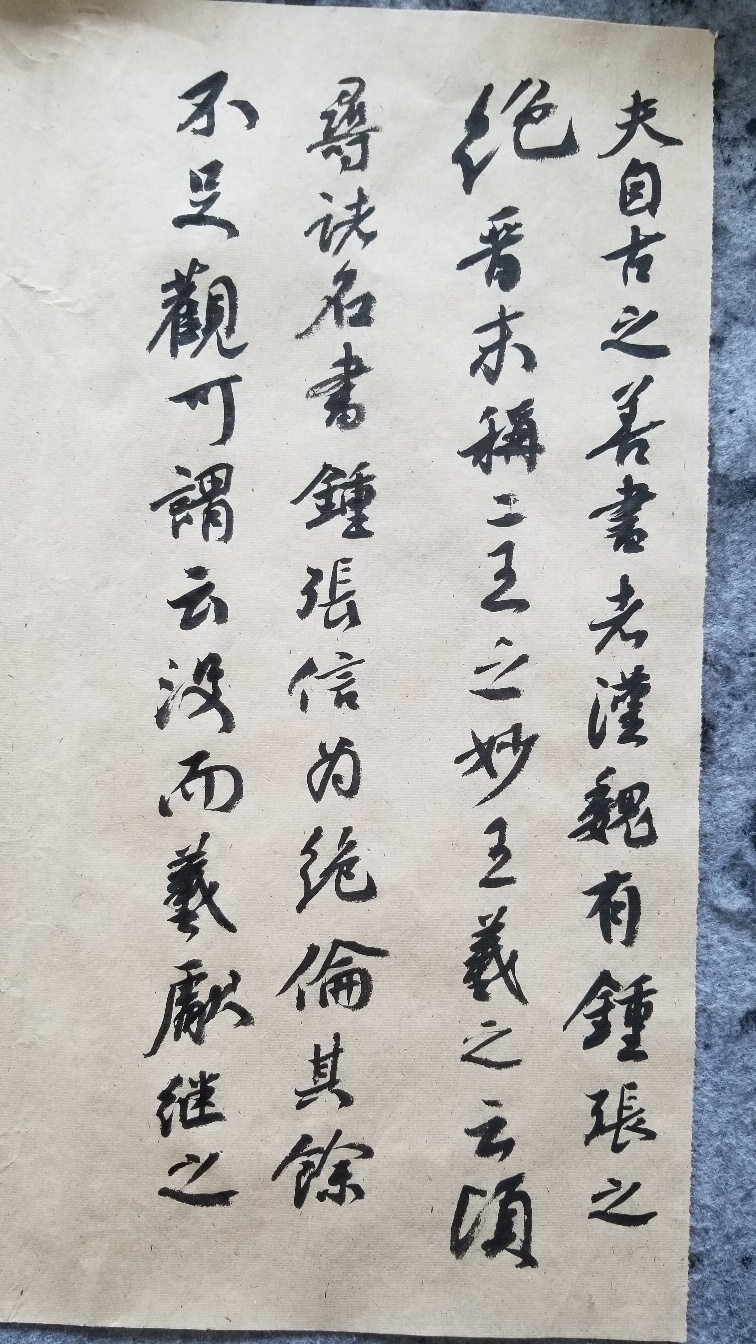 夫自古之善書者漢魏有鍾張之
绝晉末稱二王之妙王羲之云頃
尋諸名書鍾張信为绝倫其餘
不足觀可謂云没而羲獻继之